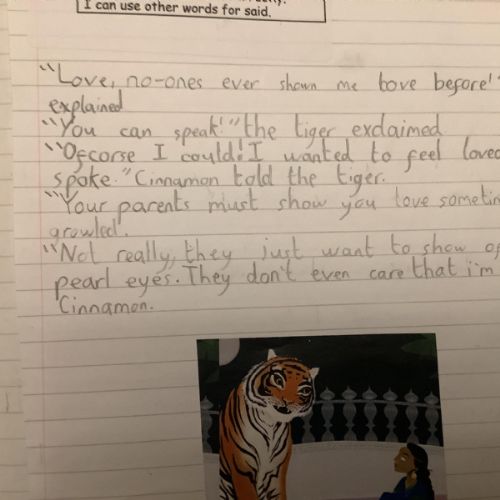 I can use other words for said.
"Love, no-ones ever shown me love before!"
explained
"You can speak!" the tiger exclaimed
"Ofcorse I could! I wanted to feel loved
spoke." Cinnamon told the tiger.
"Your parents must show you love
growled.
"Not really, they just want to show of
pearl eyes. They don't even care that i'm
Cinnamon.